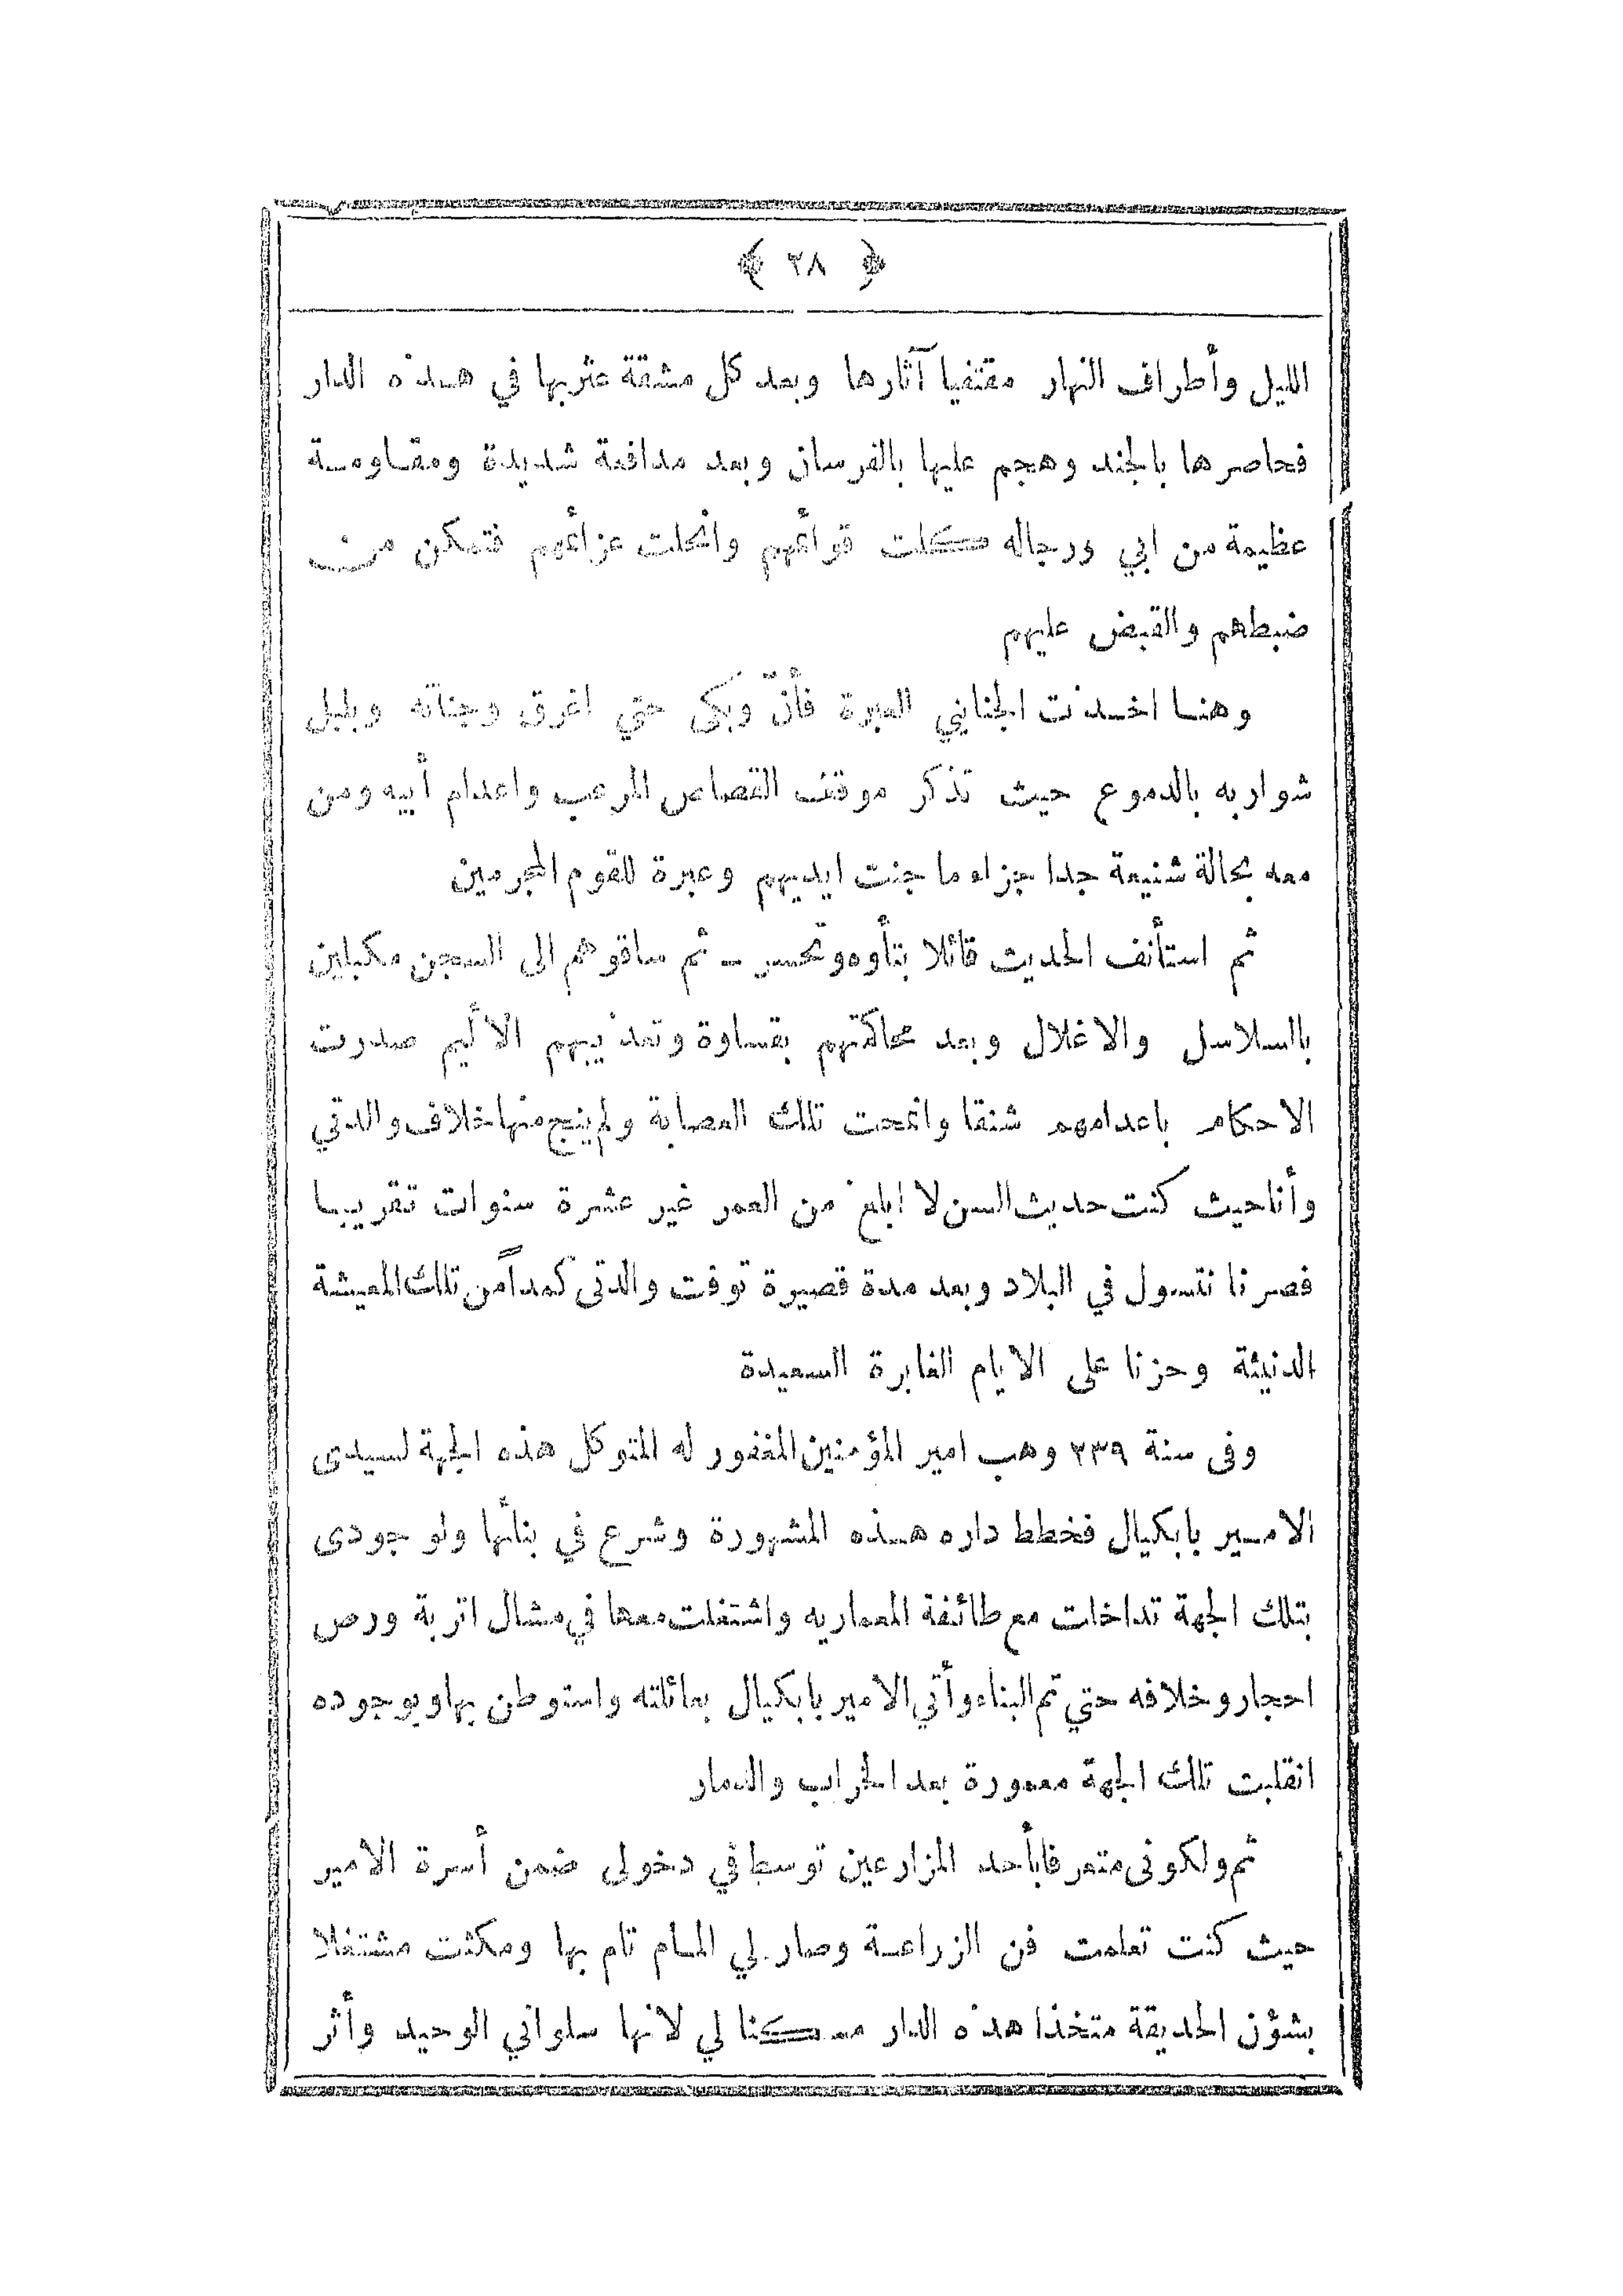 ﴿ ٢٨ ﴾
الليل وأطراف النهار مقتفيا آثارها وبعد كل مشقة عثر بها في هـذه الدار
فحاصرها بالجند وهجم عليها بالفرسان وبعد مدافعة شديدة ومقـاومـة
عظيمة من ابي ورجاله كلت قوائمهم وانحلت عزائمهم فتمكن من
ضبطهم والقبض عليهم
وهنـا اخـذت الجنايني العبرة فأنّ وبكى حتي اغرق وجناته وبلبل
شواربه بالدموع حيث تذكر موقف القصاص المرعب واعدام أبيه ومن
معه بحالة شنيعة جدا جزاء ما جنت ايديهم وعبرة للقوم المجرمين
ثم استأنف الحديث قائلا بتأوه وتحسر ـ ثم ساقوهم الى السجن مكبلين
باالسلاسل والاغلال وبعد محاكمتهم بقساوة وتعذيبهم الأليم صدرت
الاحكام باعدامهم شنقا وانمحت تلك العصابة ولم ينج منها خلاف والدتي
وأنا حيث كنت حديث السن لا ابلغ من العمر غير عشرة سنوات تقريبـا
فصرنا نتسول في البلاد وبعد مدة قصيرة توفت والدتى كمداً من تلك المعيشة
الدنيئة وحزنا على الايام الغابرة السعيدة
وفى سنة ٢٣٩ وهب امير المؤمنين المغفور له المتوكل هذه الجهة لسيدى
الامـير بابكيال فخطط داره هـذه المشهورة وشرع في بنائها ولوجودى
بتلك الجهة تداخلت مع طائفة المعماريه واشتغلت معها في مشال اتربة ورص
احجار وخلافه حتي تم البناء وأتي الامير بابكيال بعائلته واستوطن بها وبوجوده
انقلبت تلك الجهة معمورة بعد الخراب والدمار
ثم ولكونى متعرفا بأحد المزارعين توسط في دخولى ضمن أسرة الامير
حيث كنت تعلمت فن الزراعـة وصار لي المـام تام بها ومكثت مشتغلا
بشؤن الحديقة متخذا هذه الدار مسكنا لي لانها سلواني الوحيد وأثر